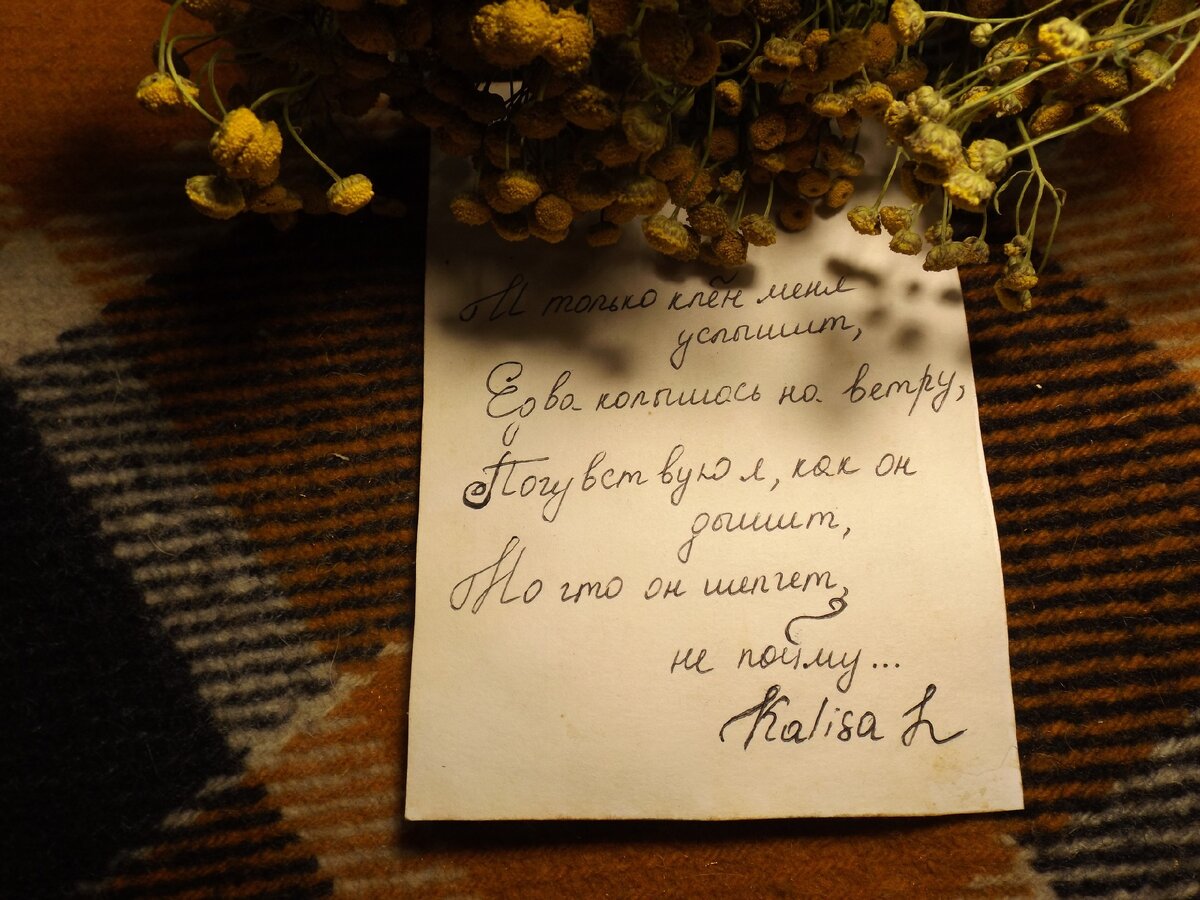 И только клён меня
услышит,
Едва колышась на ветру,
Почувствую я, как он
дышит,
Но что он шепчет,
не пойму...
Kalisa L